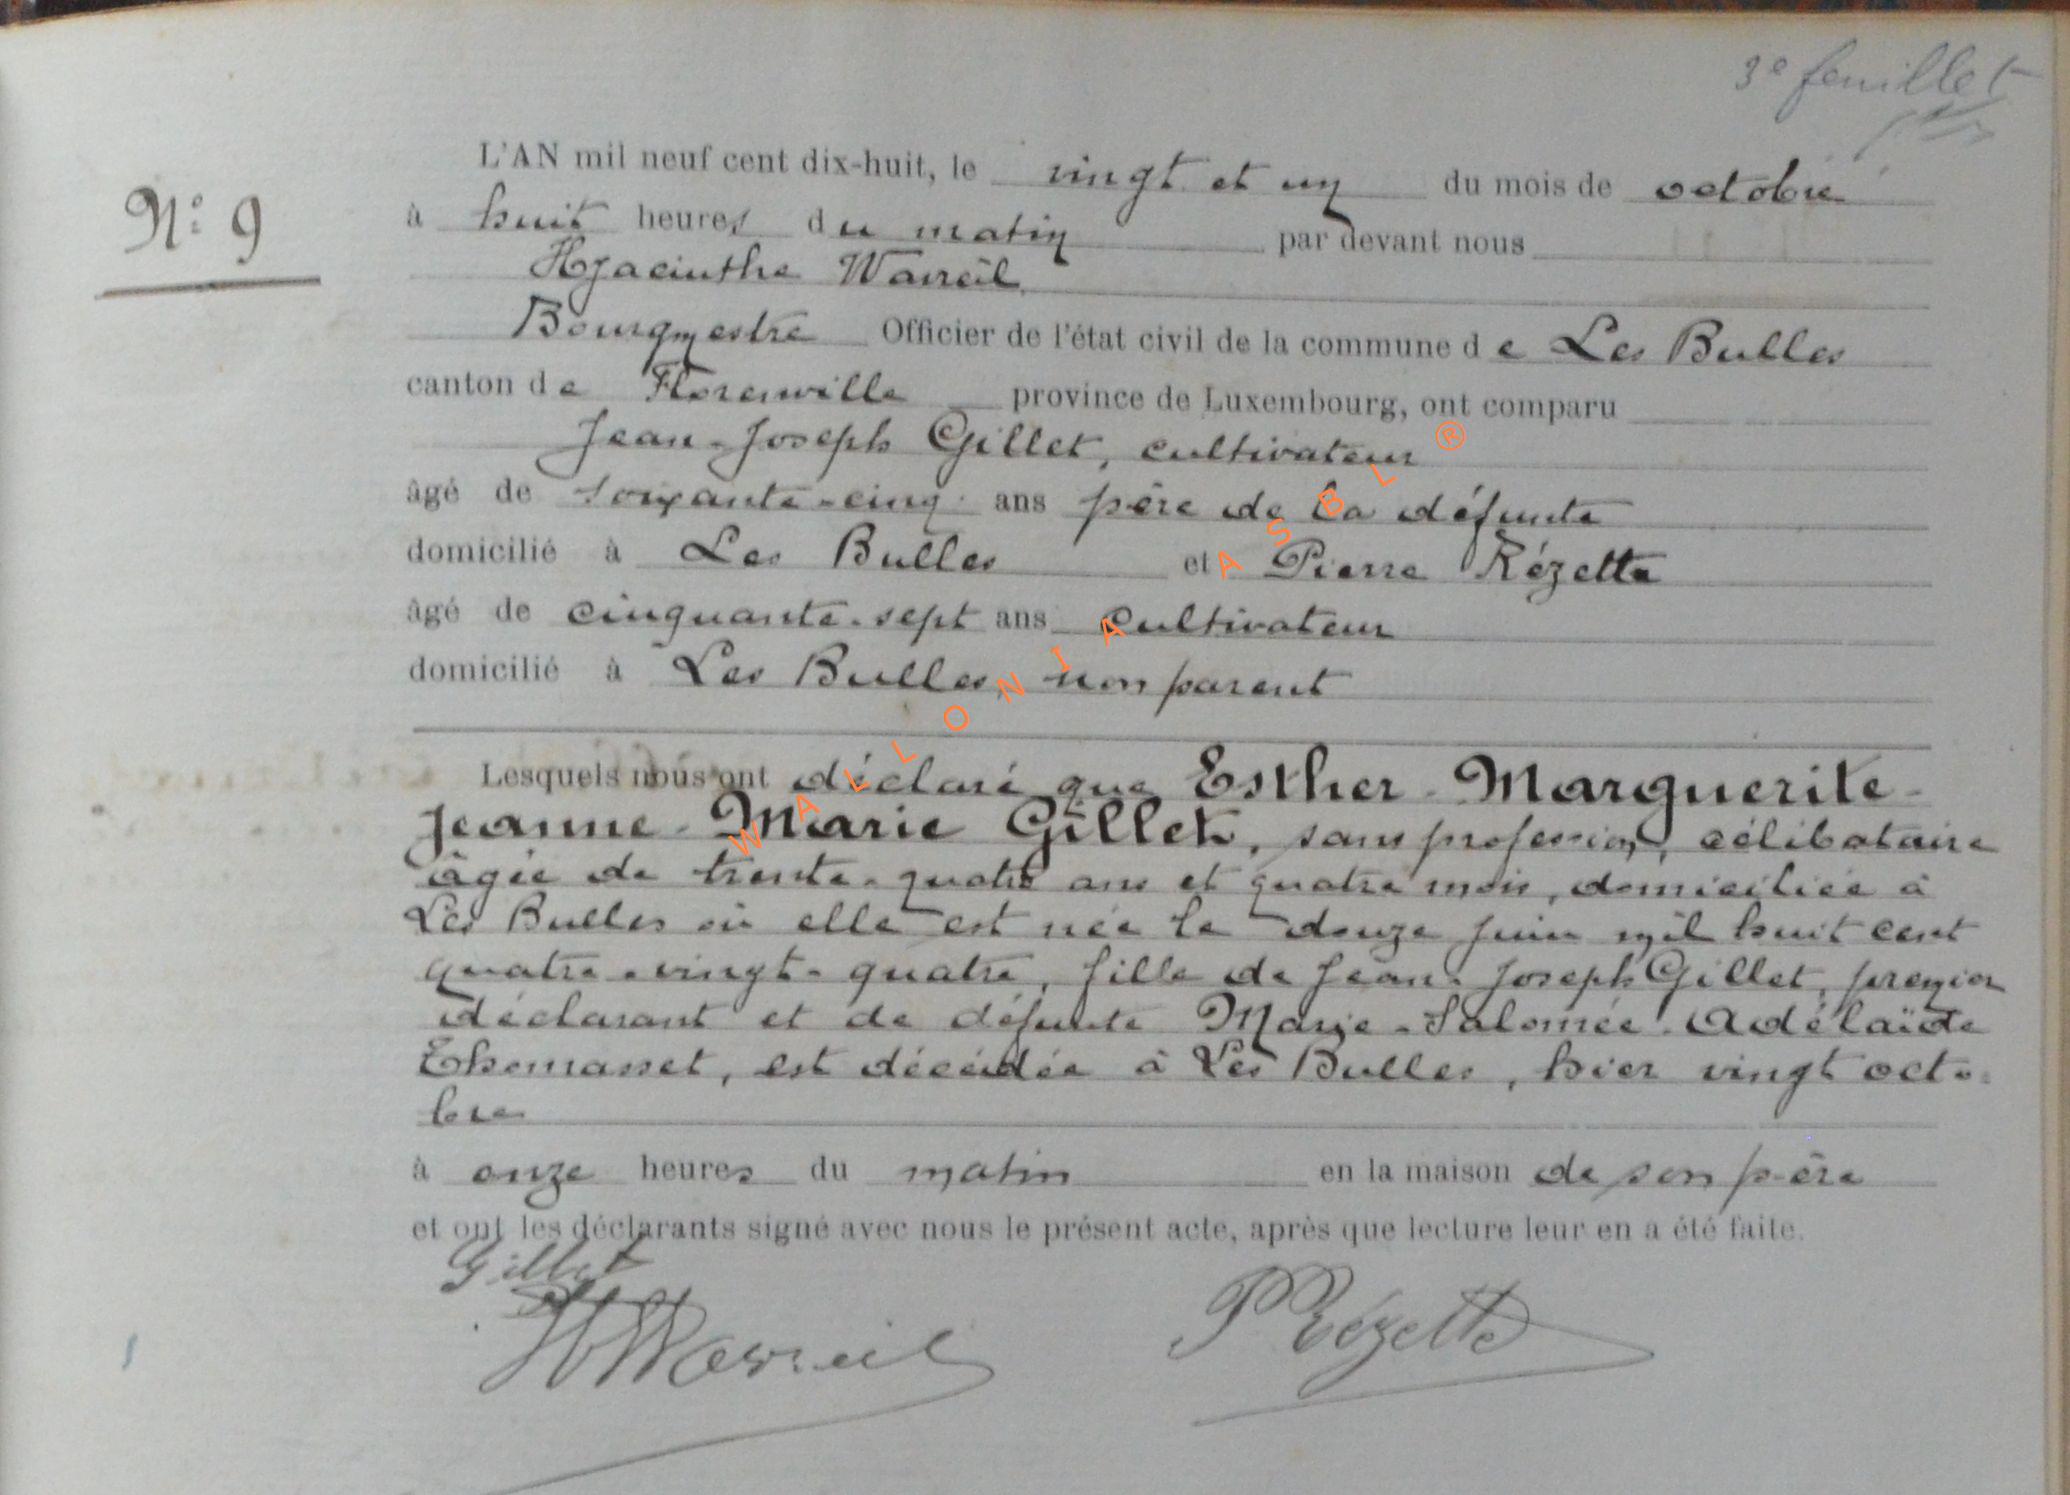 3e feuillet
N° 9
L'AN mil neuf cent dix-huit, le vingt et un du mois de octobre
à huit heures du matin par devant nous
Hyacinthe Wavreil
Bourgmestre Officier de l'état civil de la commune de Les Bulles
canton de Florenville province de Luxembourg, ont comparu
Jean-Joseph Gillet, cultivateur
âgé de soixante-cinq ans père de la défunte
domicilié à Les Bulles et Pierre Rézette
âgé de cinquante-sept ans cultivateur
domicilié à Les Bulles, non parent
Lesquels nous ont déclaré que Esther-Marguerite-
Jeanne-Marie Gillet, sans profession, célibataire
âgée de trente-quatre ans et quatre mois, domiciliée à
Les Bulles où elle est née le douze juin mil huit cent
quatre-vingt-quatre, fille de Jean-Joseph Gillet, premier
déclarant et de défunte Marie-Salomée-Adélaïde
Thomasset, est décédée à Les Bulles, hier vingt octo-
bre
à onze heures du matin en la maison de son père
et ont les déclarants signé avec nous le présent acte, après que lecture leur en a été faite.
Gillet
H Wavreil P Rézette
WALLONIA ASBL ®